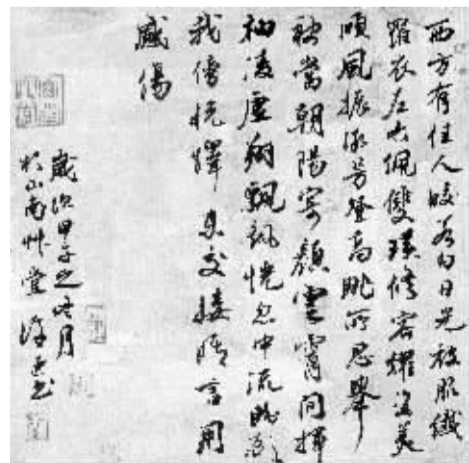 西方有佳人皎若白日光被服纖
羅衣左右佩雙璜修容耀姿美
順風振微芳登高眺所思舉
袂當朝陽寄顏雲霄間揮
袖凌虛翔飄颻恍忽中流眄顧
我傍悅懌未交接晤言用
感傷
歲次甲子之冬月
於山南艸堂書